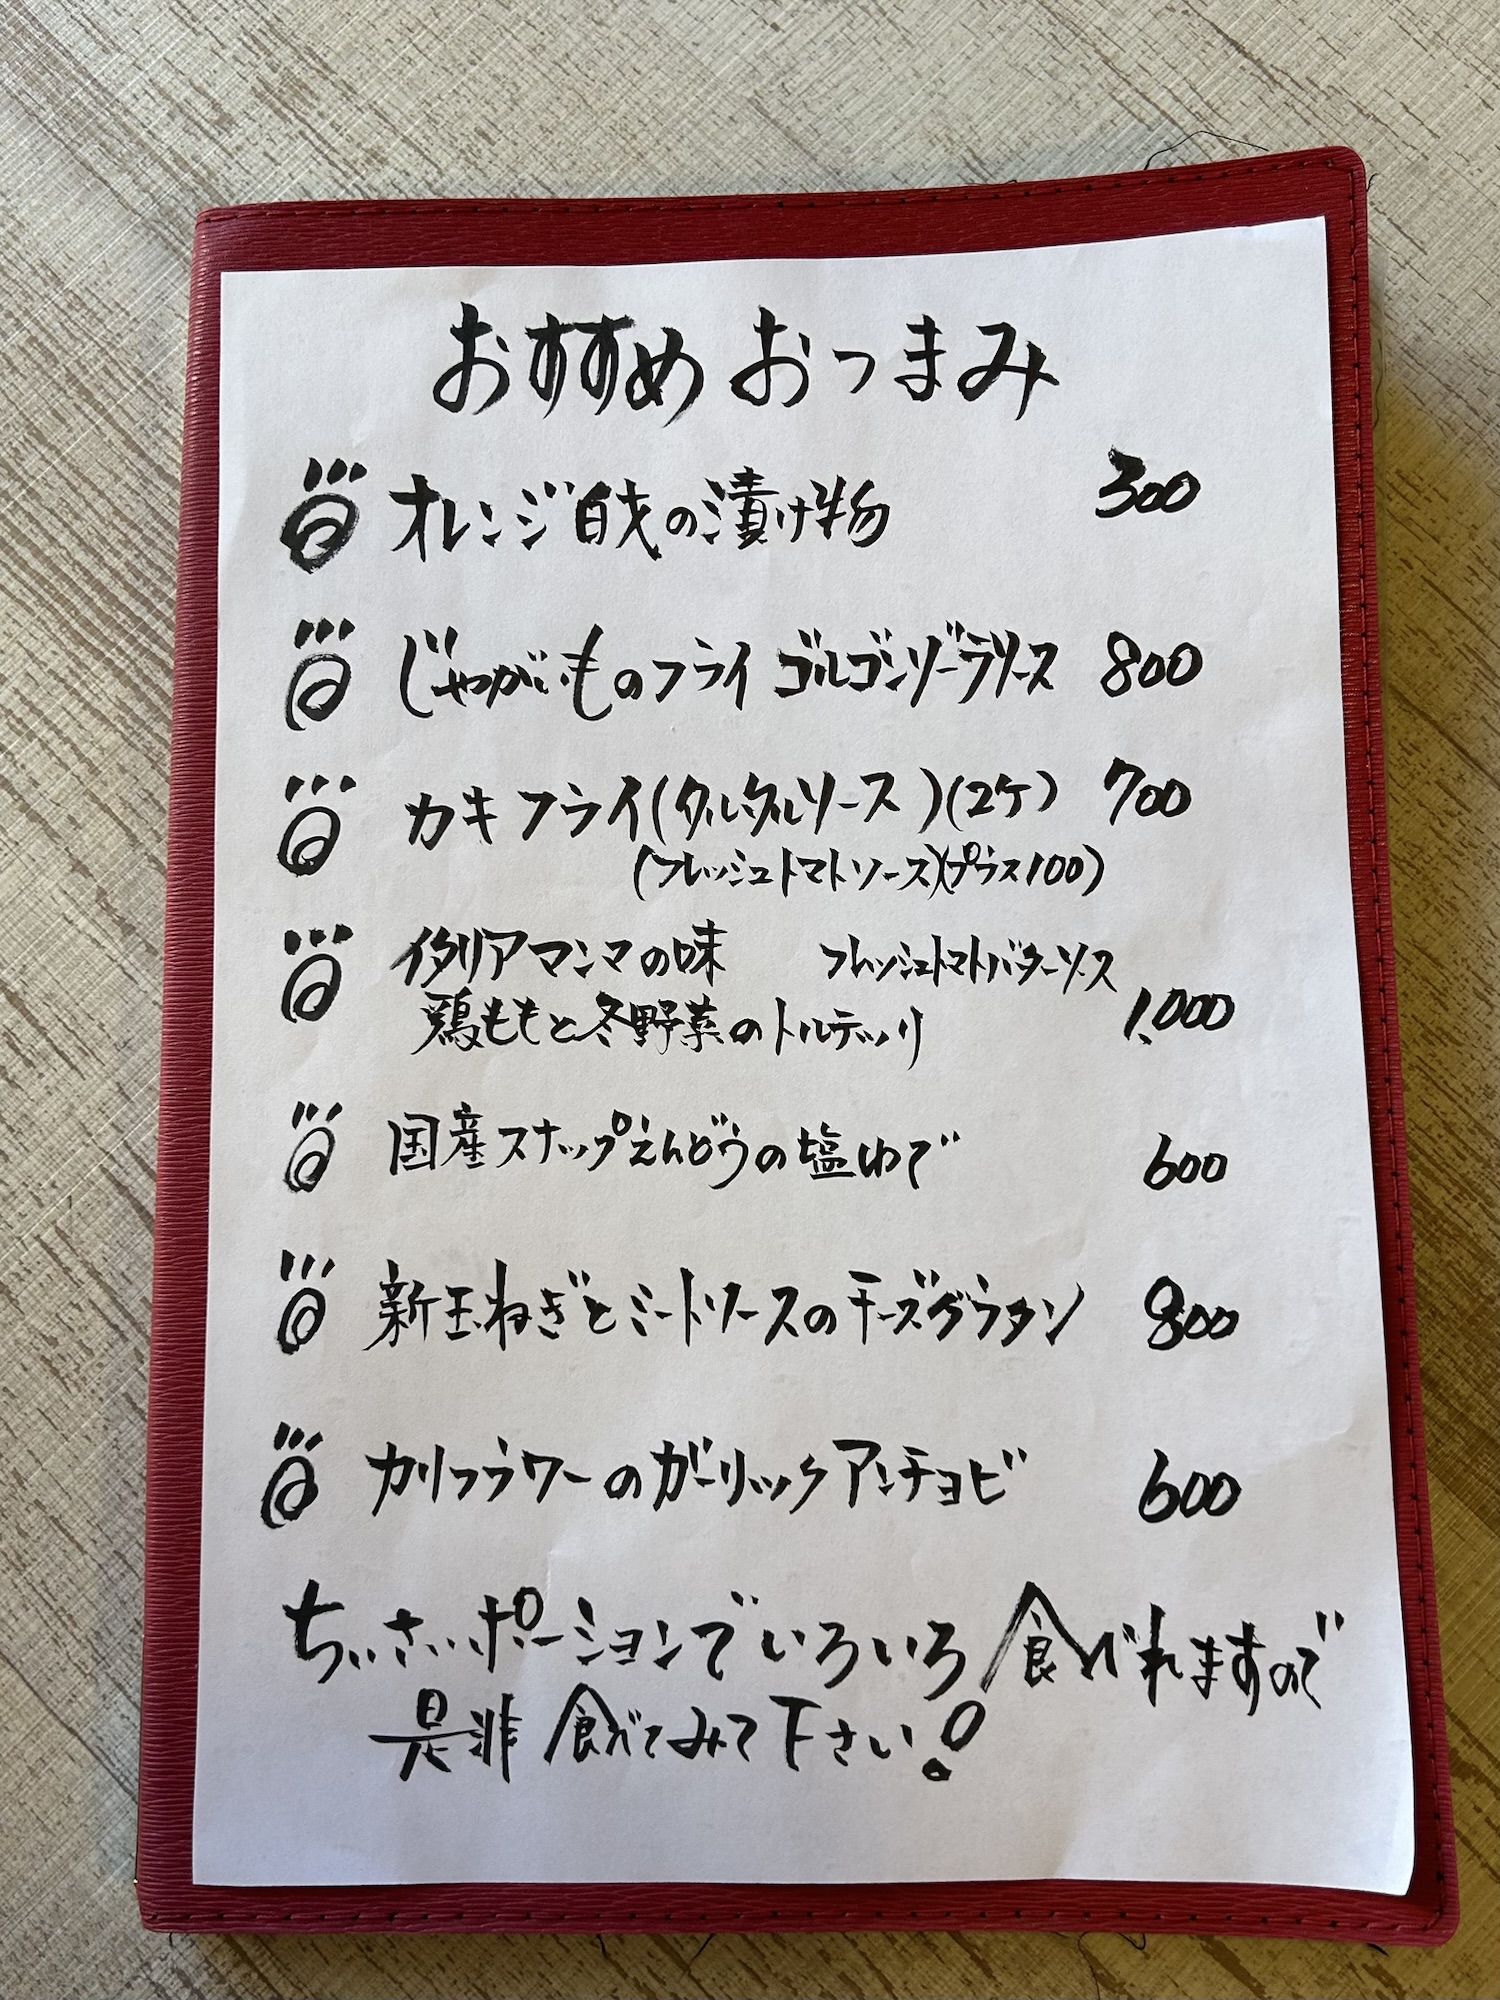 おすすめ おつまみ
オレンジ白菜の漬け物 300
じゃがいものフライ ゴルゴンゾーラソース 800
カキフライ(タルタルソース)(2ケ) 700
(フレッシュトマトソース)(プラス100)
イタリアマンマの味 フレッシュトマトバターソース
鶏ももと冬野菜のトルテッリ 1,000
国産スナップえんどうの塩ゆで 600
新玉ねぎとミートソースのチーズグラタン 800
カリフラワーのガーリックアンチョビ 600
ちいさいポーションでいろいろ食べれますので
是非食べてみて下さい!